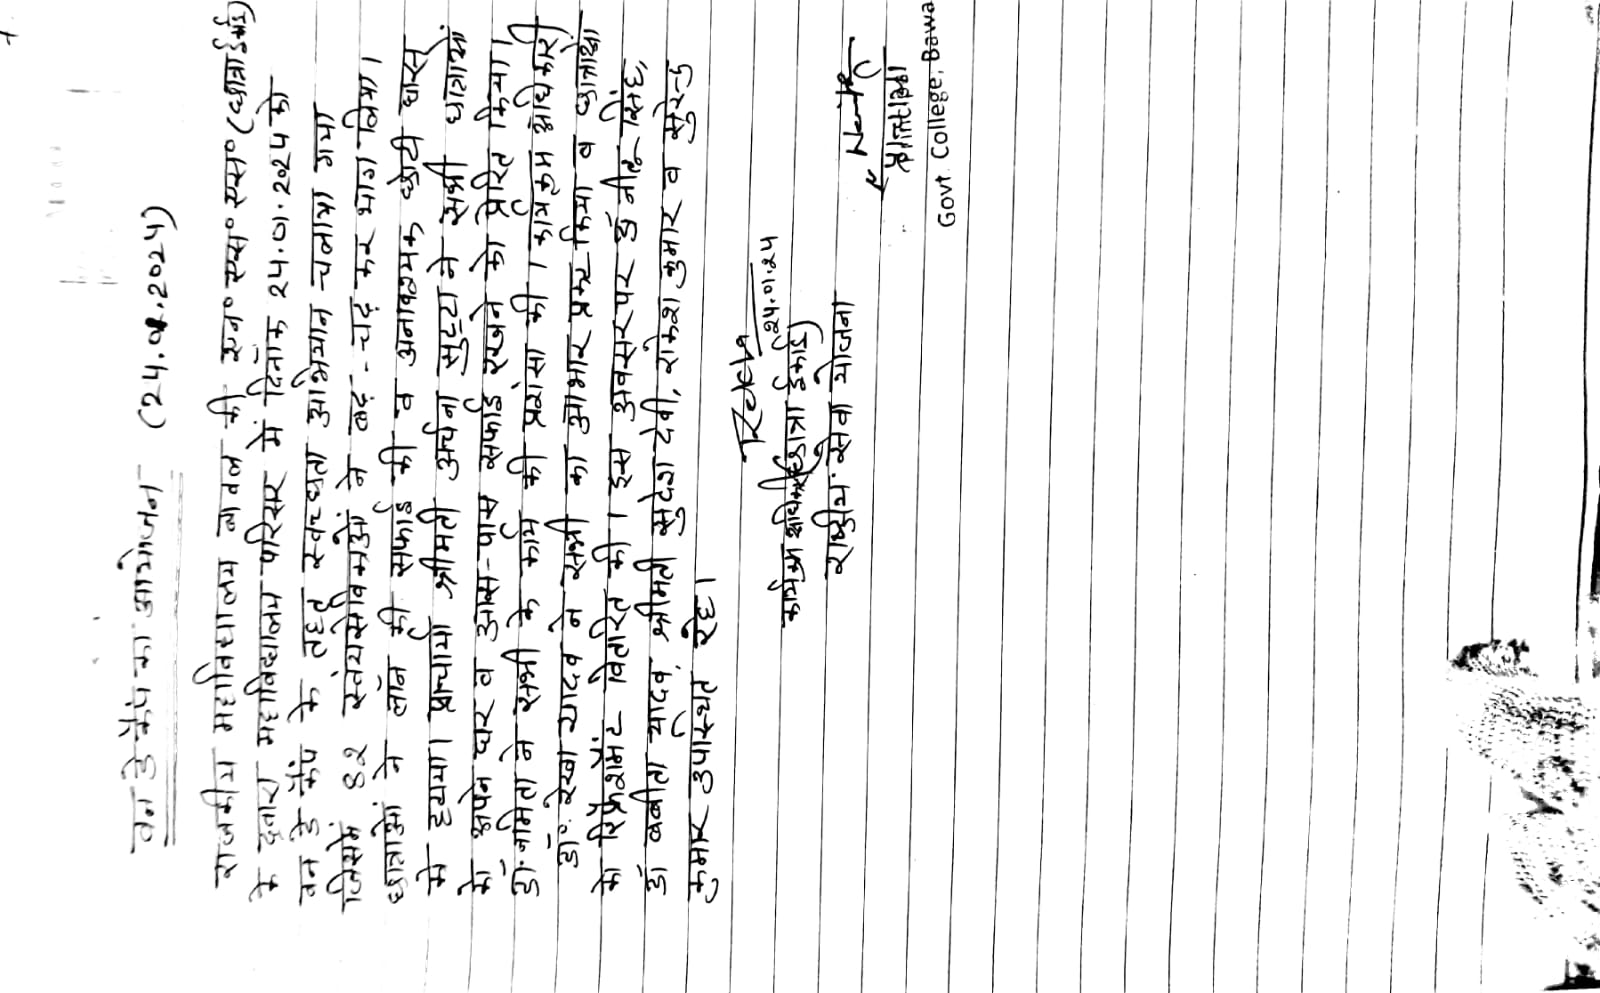 वन डे कैंप का आयोजन (24.01.2024)
राजकीय महाविद्यालय बावल की एन॰ एस॰ एस॰ (छात्रा ईकाई)
के द्वारा महाविद्यालय परिसर में दिनांक 24.01.2024 को
वन डे कैंप के तहत स्वच्छता अभियान चलाया गया
जिसमें 82 स्वंयसेविकाओं ने बढ़-चढ़ कर भाग लिया।
छात्राओं ने लॉन की सफाई की व अनावश्यक छोटी घास
को हटाया। प्राचार्या श्रीमती अर्चना ने सभी छात्राओं
को अपने घर व आस-पास सफाई रखने को प्रेरित किया।
डॉ. नमिता ने सभी के कार्य की प्रशंसा की। कार्यक्रम अधिकारी
डॉ. रेखा यादव ने सभी का आभार प्रकट किया व छात्राओं
को रिफ्रेशमेंट वितरित की। इस अवसर पर डॉ सिंह,
डॉ बबीता यादव, श्रीमती सुदेश देवी, राकेश कुमार व सुरेन्द्र
कुमार उपस्थित रहे।
Rekha
24.01.24
कार्यक्रम अधिकारी (छात्रा ईकाई)
राष्ट्रीय सेवा योजना
Principal
Govt. College, Bawa